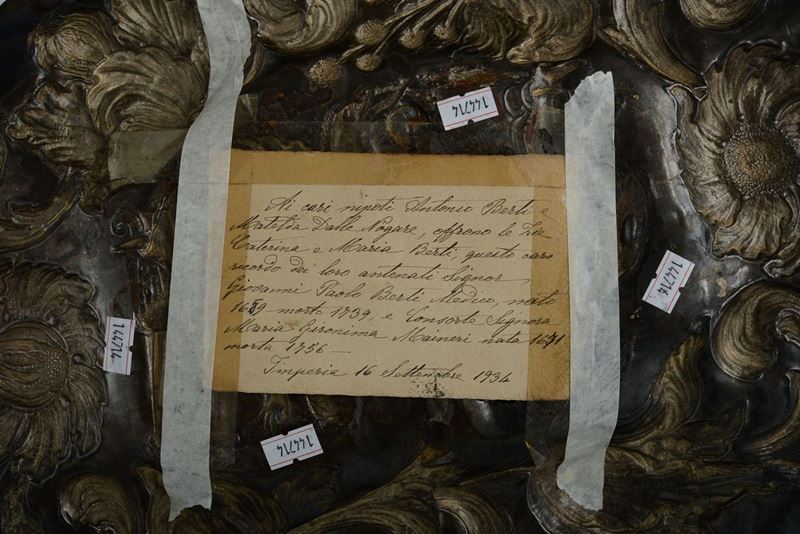 144714
Ai cari nipoti Antonio Berti e
Matelda Dalle Nogare, offrono le Zie
Caterina e Maria Berti, questo caro
ricordo dei loro antenati Signor
Giovanni Paolo Berti Medico, nato
1659 morto 1739, e Consorte Signora
Maria Gironima Maineri nata 1671
morta 1756 —
Imperia 16 Settembre 1934
144714
144714
144714